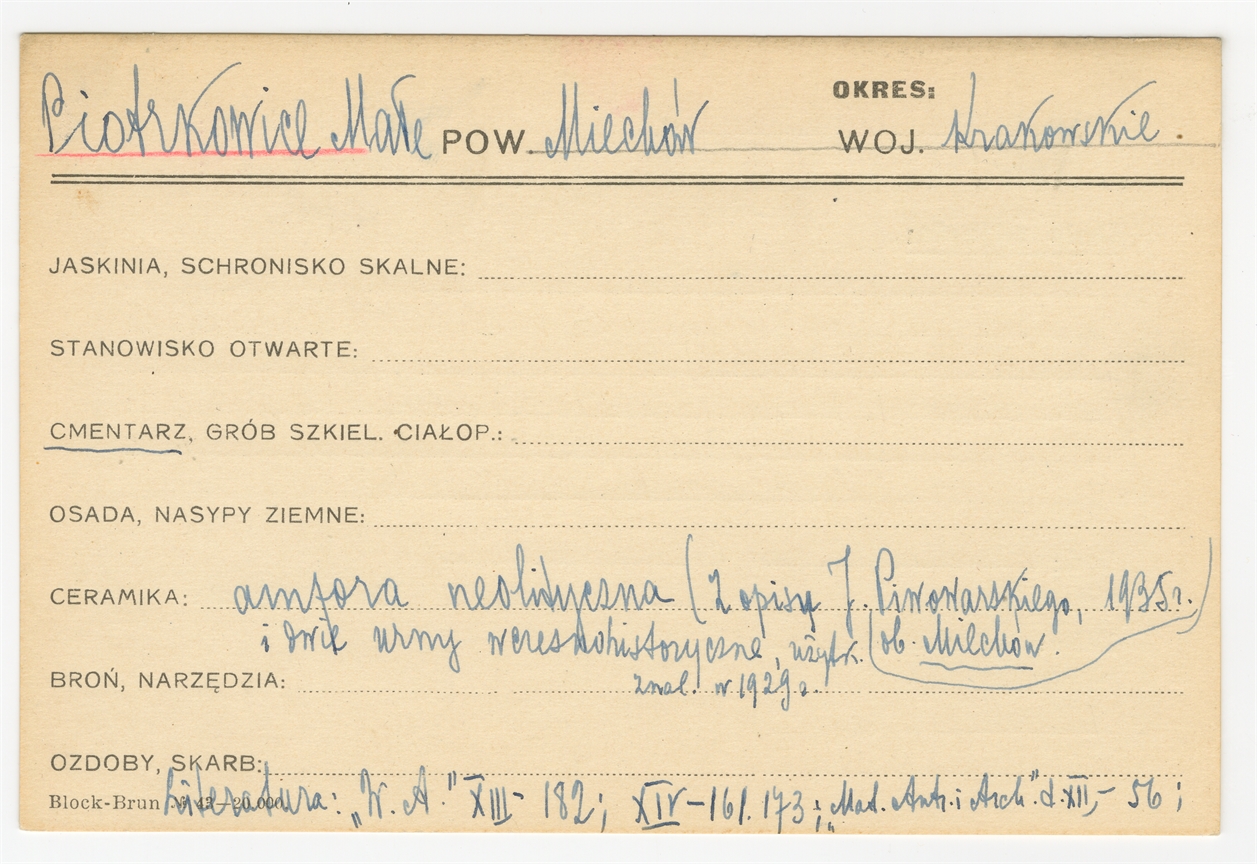 OKRES:
Piotrkowice Małe POW. Miechów WOJ. Krakowskie.
JASKINIA, SCHRONISKO SKALNE:
STANOWISKO OTWARTE:
CMENTARZ, GRÓB SZKIEL. CIAŁOP.:
OSADA, NASYPY ZIEMNE:
CERAMIKA: amfora neolityczna (z opisu J. Piwowarskiego, 1935r.)
i dwie urny wczesnohistoryczne, (ob. Miechów.
BROŃ, NARZĘDZIA: znal. w 1929 r.
OZDOBY, SKARB:
Block-Brun № 42—20.000. Literatura: „W. A." XIII - 182; XIV - 161. 173; „Mat. Antr. i Arch." d. XII, - 56;